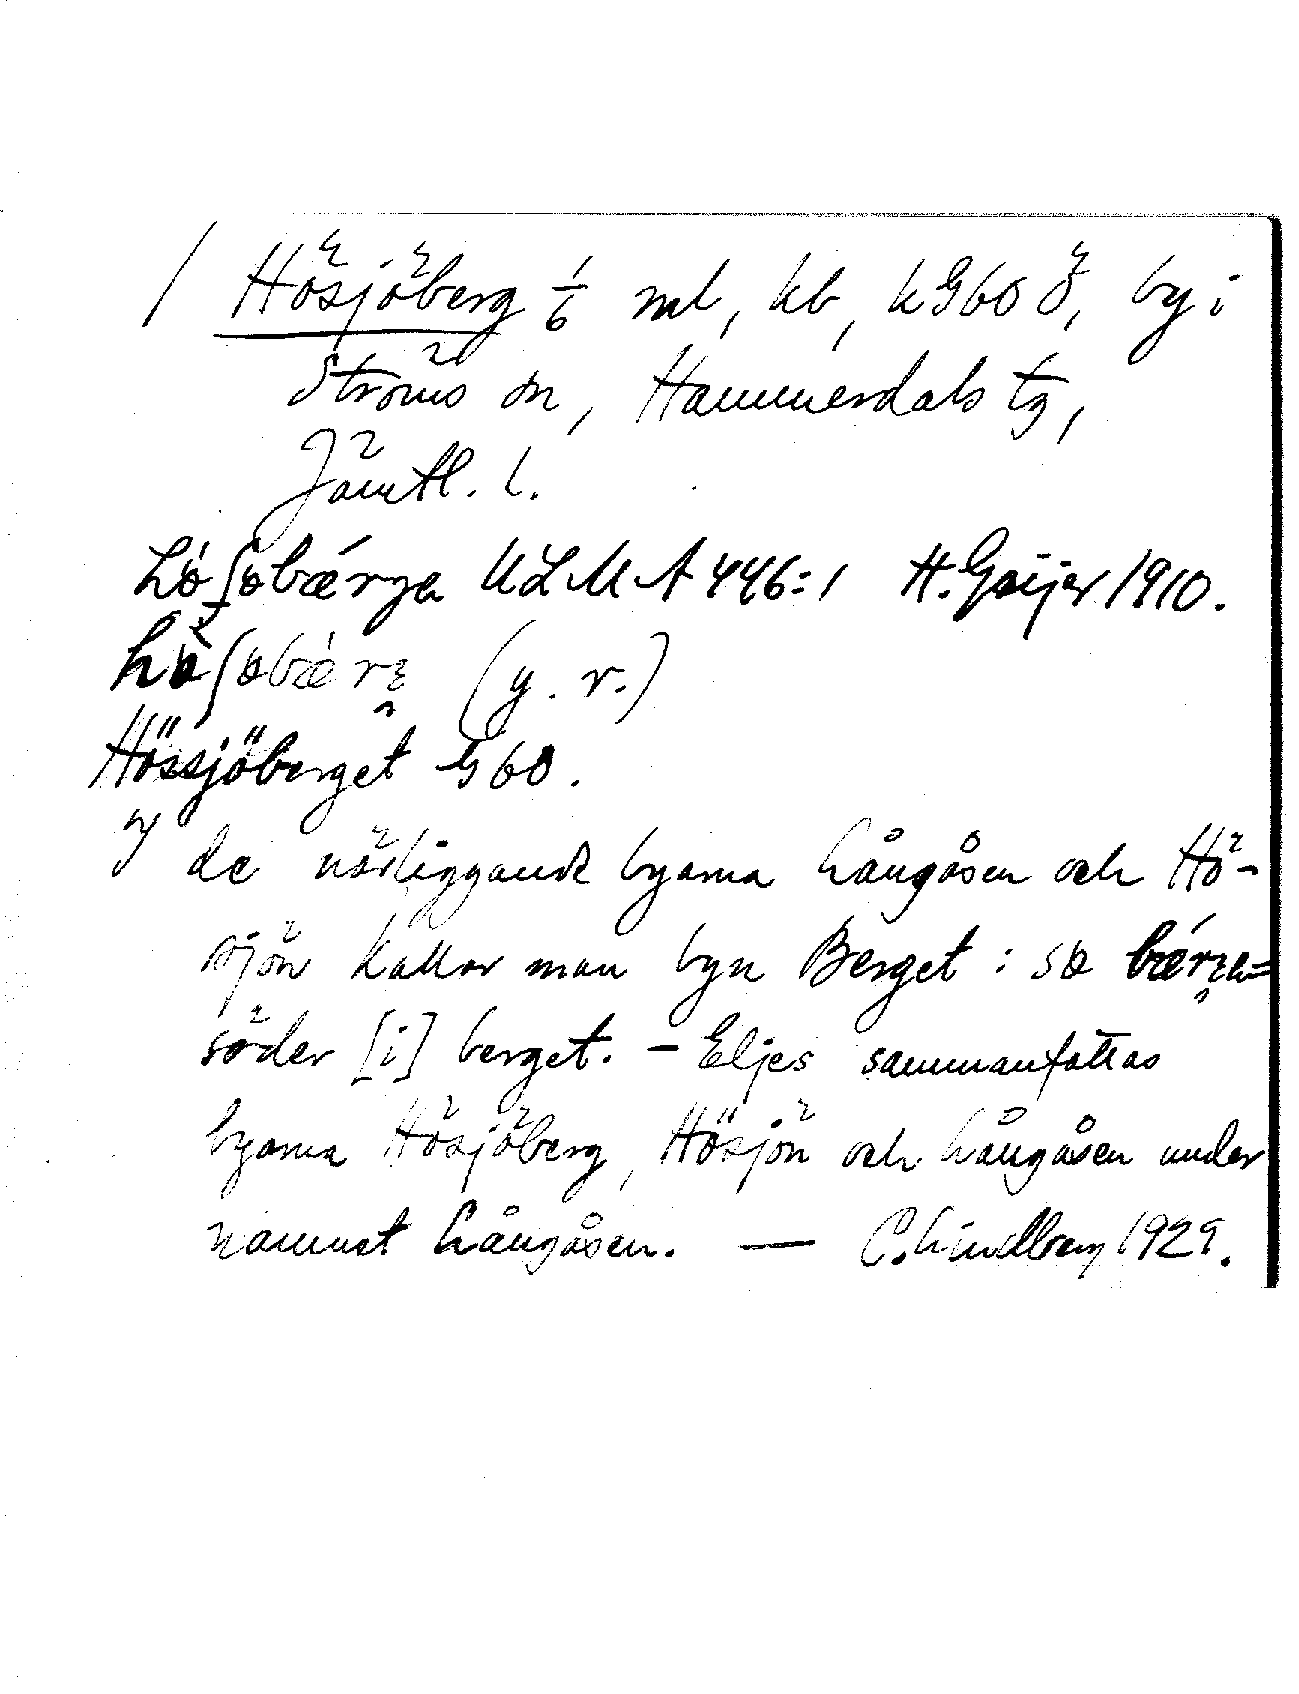 / Hösjöberg 1/6 ml, kb, kG60Ö, by i
Ströms sn, Hammerdals tg,
Jämtl. l.
ULMA 446:1 H. Geijer 1910.
(y. r.)
Hössjöberget G60.
I de närliggande byarna Långåsen och Hö-
sjön kallar man byn Berget: sø bærʒa=
söder [i] berget. – Eljes sammanfattas
byarna Hösjöberg, Hösjön och Långåsen under
namnet Långåsen. — C. Lindberg 1929.